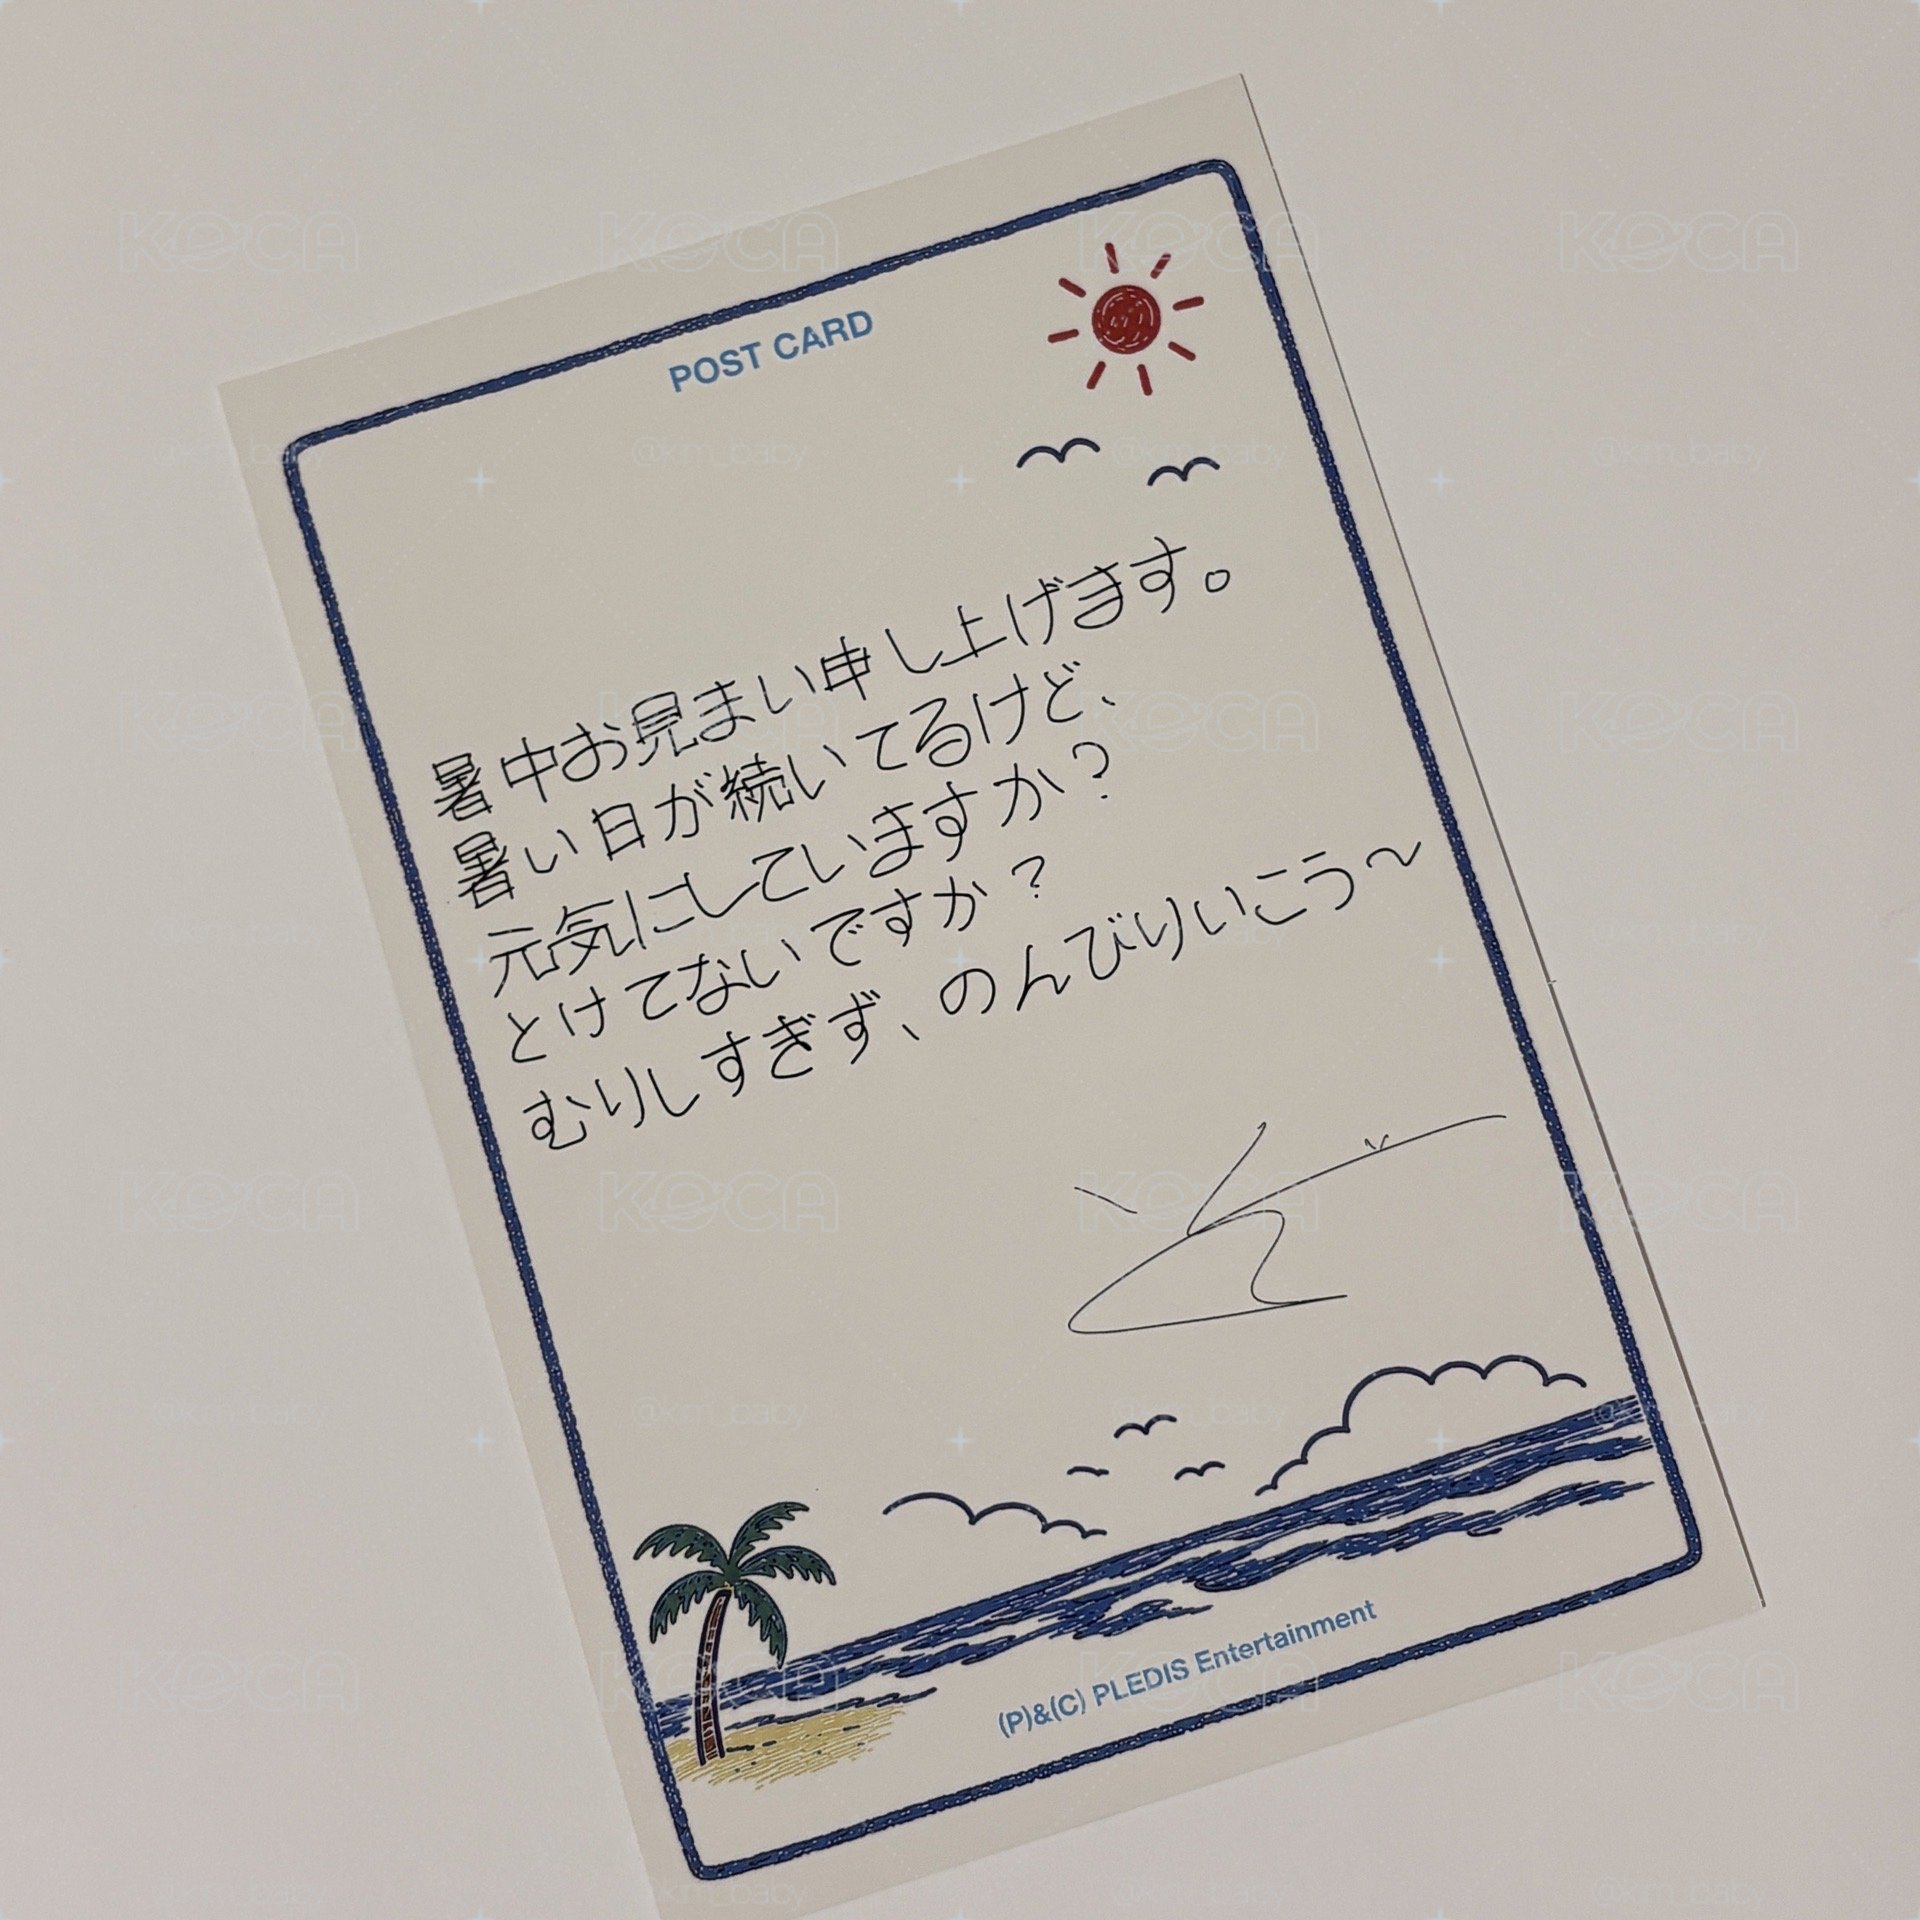 POST CARD
暑中お見まい申し上げます。
暑い日が続いてるけど、
元気にしていますか?
とけてないですか?
むりしすぎず、のんびりいこう〜
(P)&(C) PLEDIS Entertainment
KOCA
@km_baby